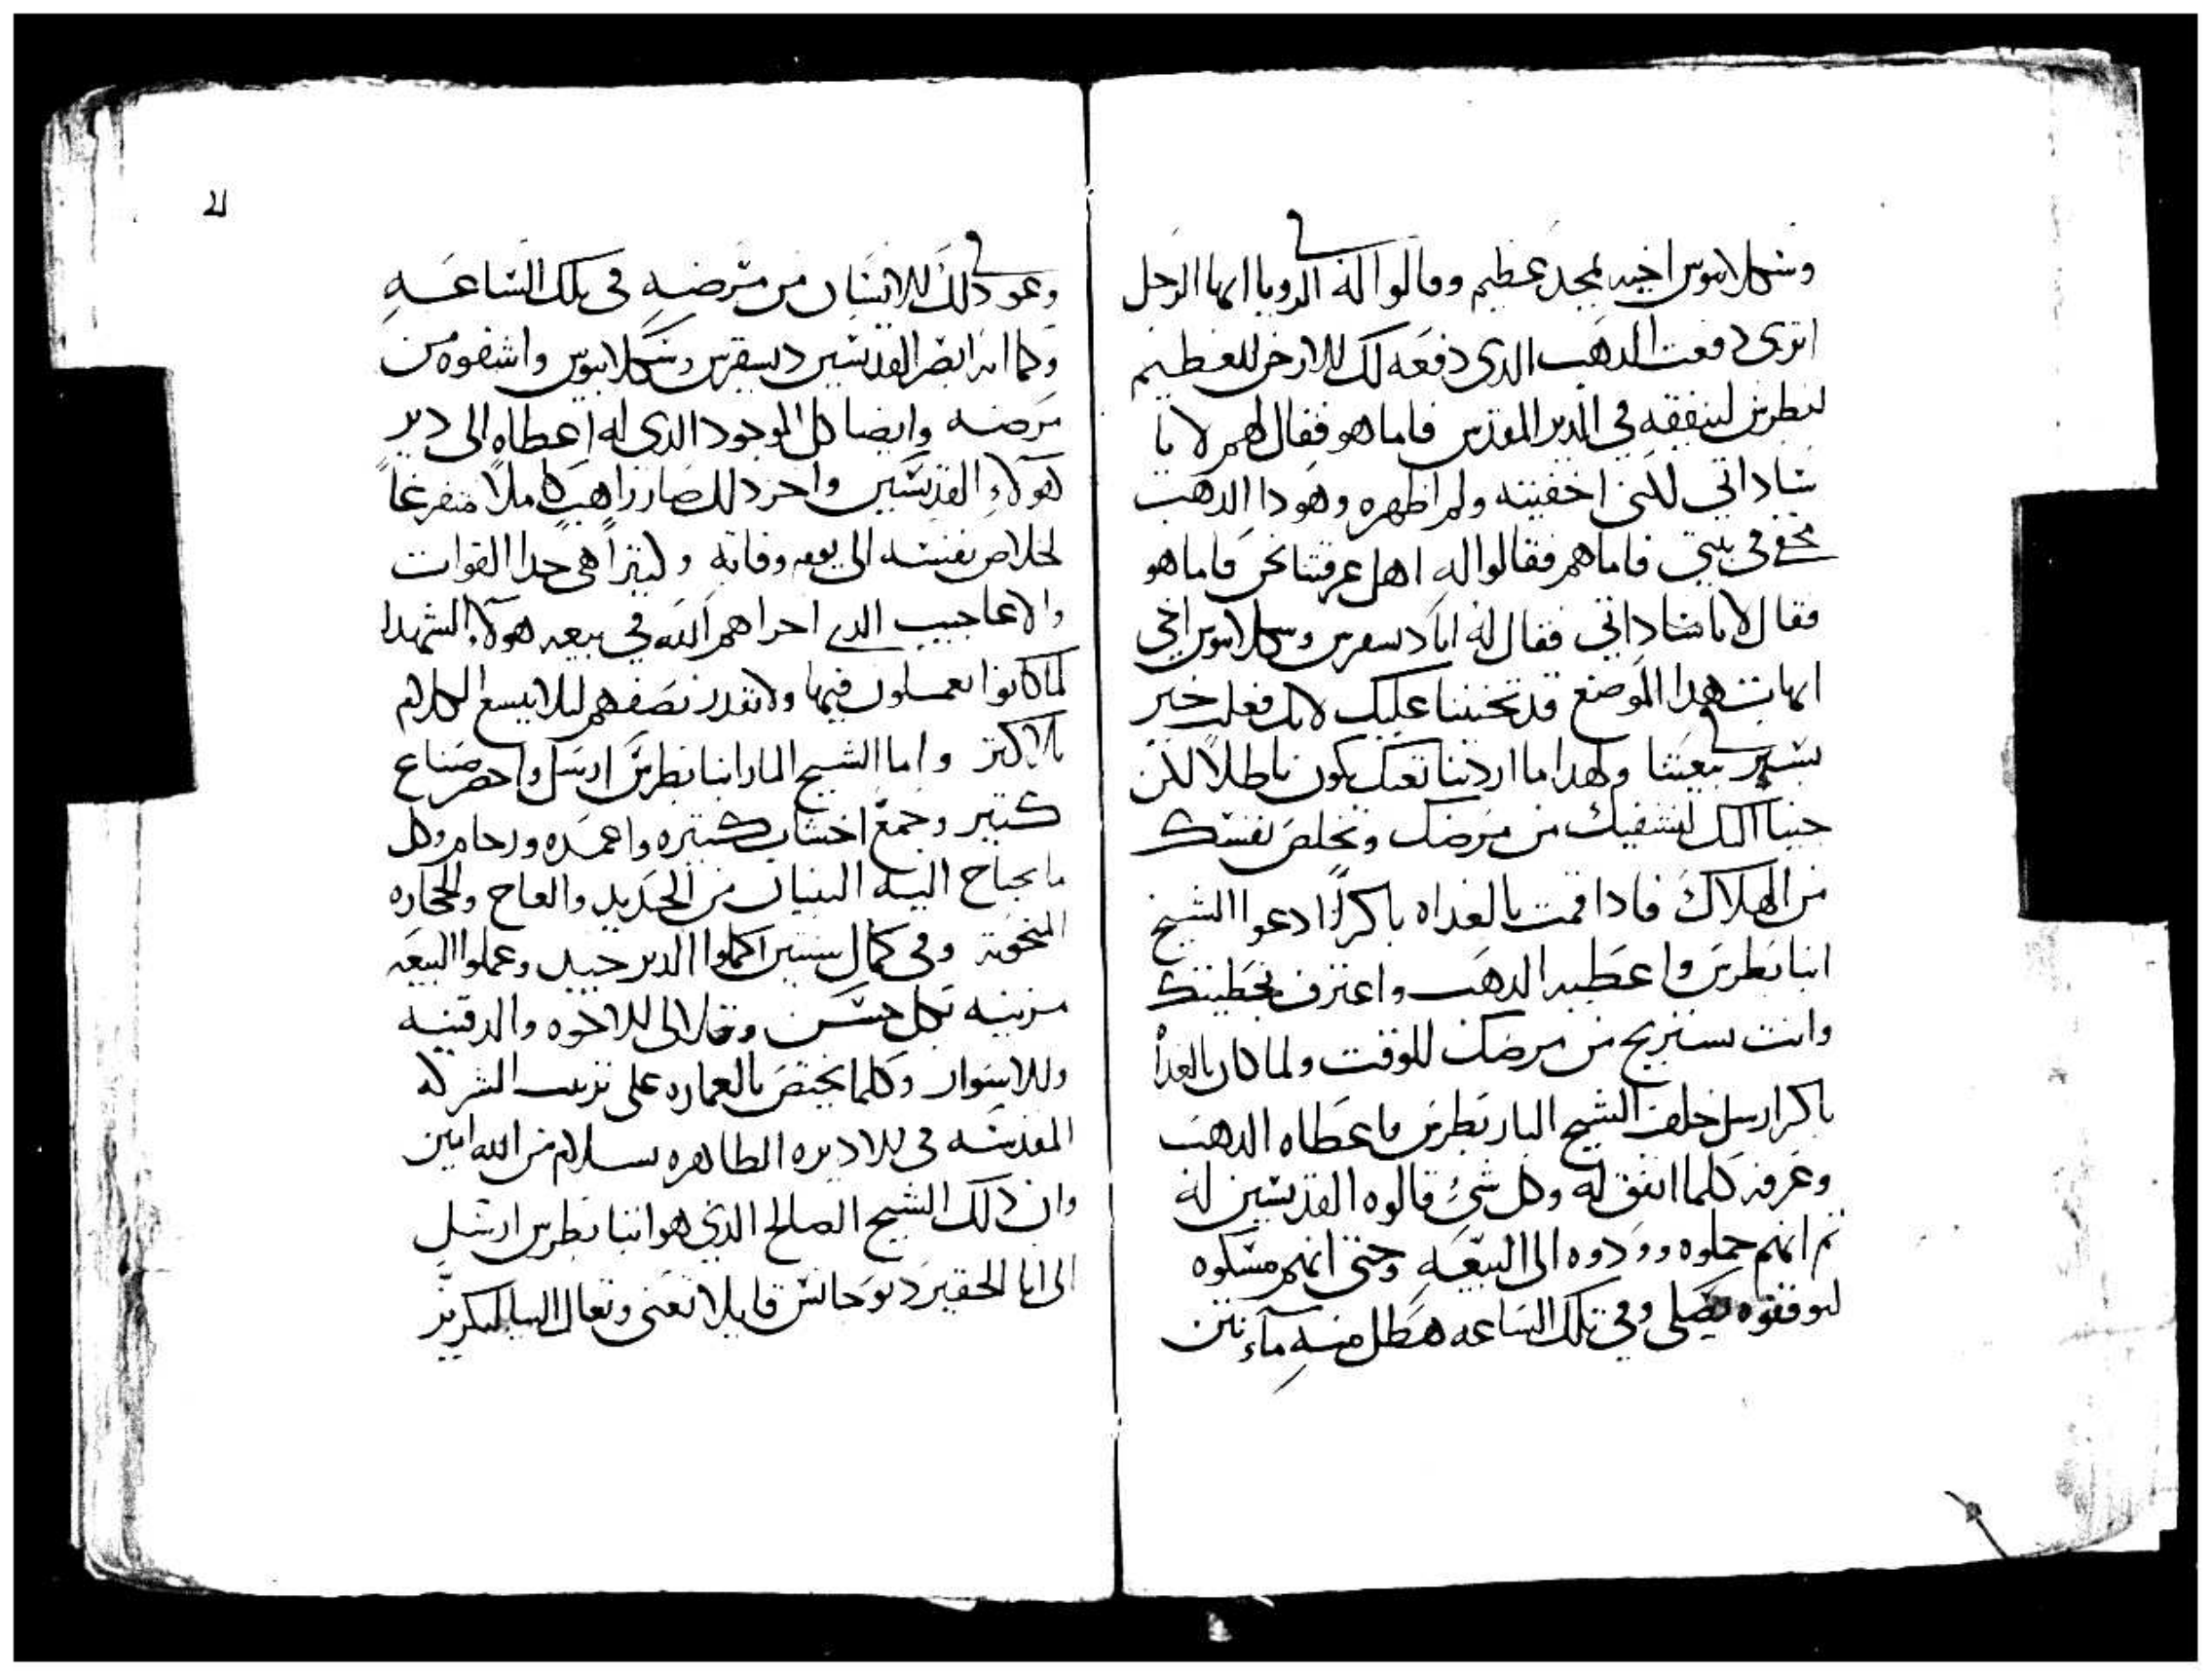 وسكلابيوس اخيه بمجد عظيم وقالوا له في الرويا ايها الرجل
اترى دفعت الدهب الدى دفعه لك الارخن العظيم
لبطرس لينفقه في الدير المقدس فاما هو فقال لهم لا يا
ساداتي لكن اخفيته ولم اظهره وهودا الدهب
مخفي في بيتي فاما هم فقالوا له اهل عرفتنا نحن فاما هو
فقال لا يا ساداتي فقال له انا دسقرس وسكلابيوس اخي
ايهات هدا الموضع قد تحننا عليك لانك فعلت خير
بسير في بيعتنا ولهدا ما اردنا تعبك يكون باطلا لكن
جينا اليك لنشفيك من مرضك وتخلص نفسك
من الهلاك فادا قمت بالغداه باكرا ادعوا الشيخ
انبا بطرس واعطيه الدهب واعترف بخطيتك
وانت تستريح من مرضك للوقت ولما كان بالغداه
باكر ارسل خلف الشيخ البار بطرس فاعطاه الدهب
وعرفه كلما اتفق له وكل شئ قالوه القديسين له
تم انهم حملوه وودوه الى البيعه وحتى انهم مسكوه
ليوقفوه يصلى وفي تلك الساعه هطل منه مآء نتن
وعوفي دلك الانسان من مرضه في تلك الساعه
وكما انه ابصر القديسين دسقرس وسكلابيوس واشفوه من
مرضه وايضا كل الموجود الدى له اعطاه الى دير
هولاء القديسين واخر دلك صار راهبا كاملا متفرغا
لخلاص نفسه الى يوم وفاته وكتيرا هى جدا القوات
والاعاجيب الدي اجراهم الله في بيعه هولاء الشهدا
لما كانوا يعملون فيها ولا نقدر نصفهم ليلا يسع الكلام
بالاكتر واما الشيخ البار انبا بطرس ارسل واحضر صناع
كتير وجمع اخشاب كتيره واعمده ورخام وكل
ما يحتاج اليه البنيان من الحديد والعاج والحجاره
المنحوته وفي كمال سنين اكملوا الدير جيد وعملوا البيعه
مزينه بكل حسن وقلالى للاخوه والدقنيه
والاسوار وكلما يختص بالعماره على ترتيب الشركه
المقدسه في الاديره الطاهره بسلام من الله امين
وان دلك الشيخ الصالح الدي هو انبا بطرس ارسل
الى انا الحقير ديوجانس قايلا تعنى وتعال الينا لتكريز